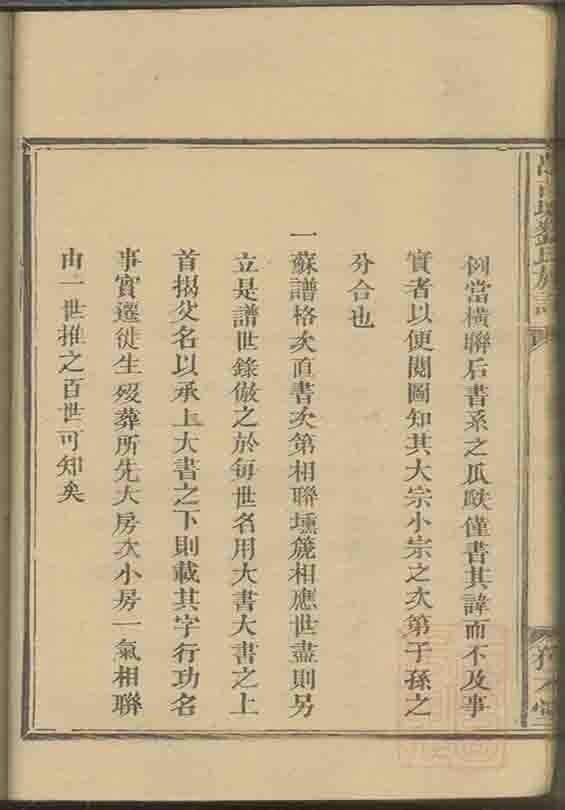 劉氏族譜
例當橫聯后書系之瓜瓞僅書其諱而不及事
實者以便閱圖知其大宗小宗之次第子孫之
分合也
一蘇譜格次直書次第相聯壎篪相應世盡則另
立是譜世錄倣之於每世名用大書大書之上
首揭父名以承上大書之下則載其字行功名
事實遷徙生歿葬所先大房次小房一氣相聯
由一世推之百世可知矣